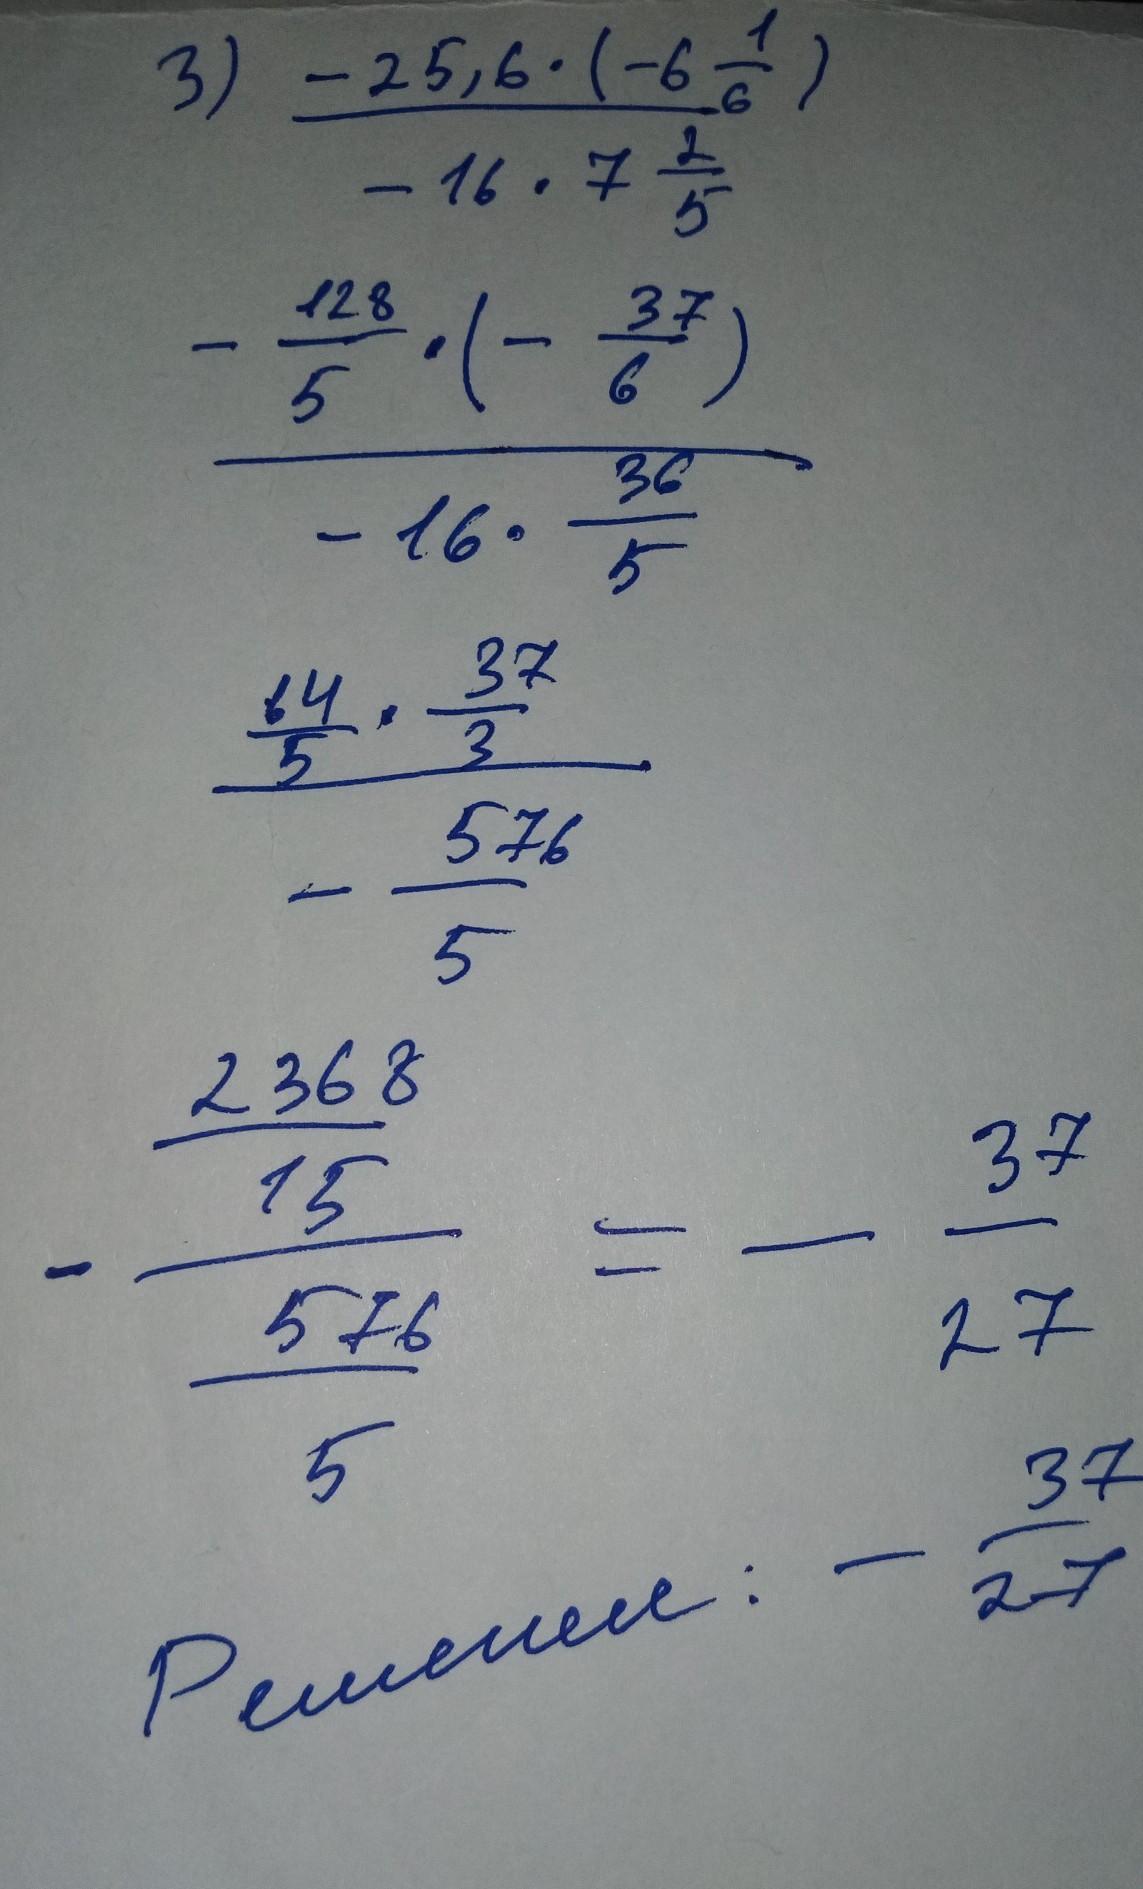 3) -25,6·(-6 1/6)
-16·7 2/5
- 128/5·(- 37/6)
-16· 36/5
64/5 · 37/3
- 576/5
- 2368/15
576/5
= - 37/27
Решение: - 37/27